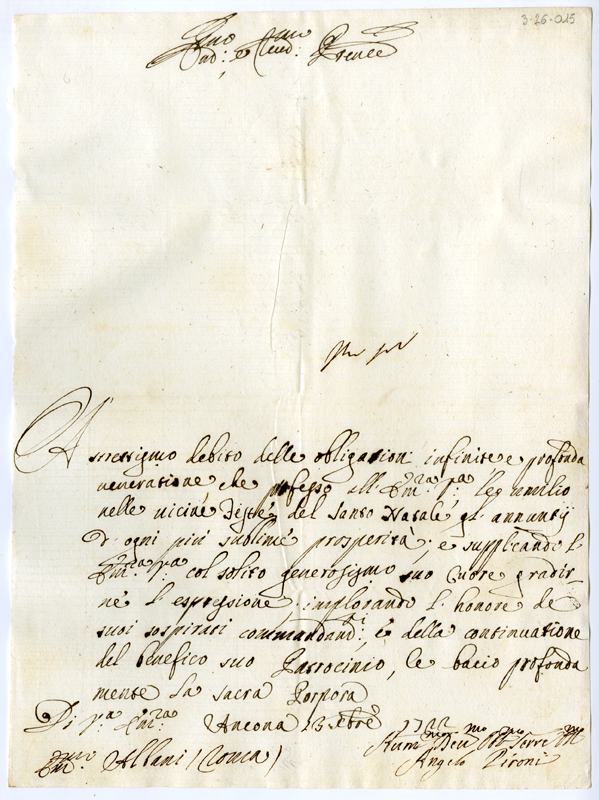 3-26-015
Em̃o
e Rev: Prence
A strettissimo debito delle obligazioni infinite e profonda
veneratione che professo all' Em:za V:ra le umilio
nelle vicine Feste del Santo Natale gl' annuntij
d' ogni più sublime prosperità; e supplicando l'
Em:za V:ra col solito generosissimo suo Cuore gradir
ne l' espressione, implorando l' honore de
suoi sospirati commandam:ti, e della continuatione
del benefico suo Patrocinio, le bacio profonda
mente la sacra Porpora
Di V:ra Em:za Ancona 13 Xbre 1722
Em: Albani (Roma) Hum:mo Dev:mo Obl:mo Serre
Angelo Pironi